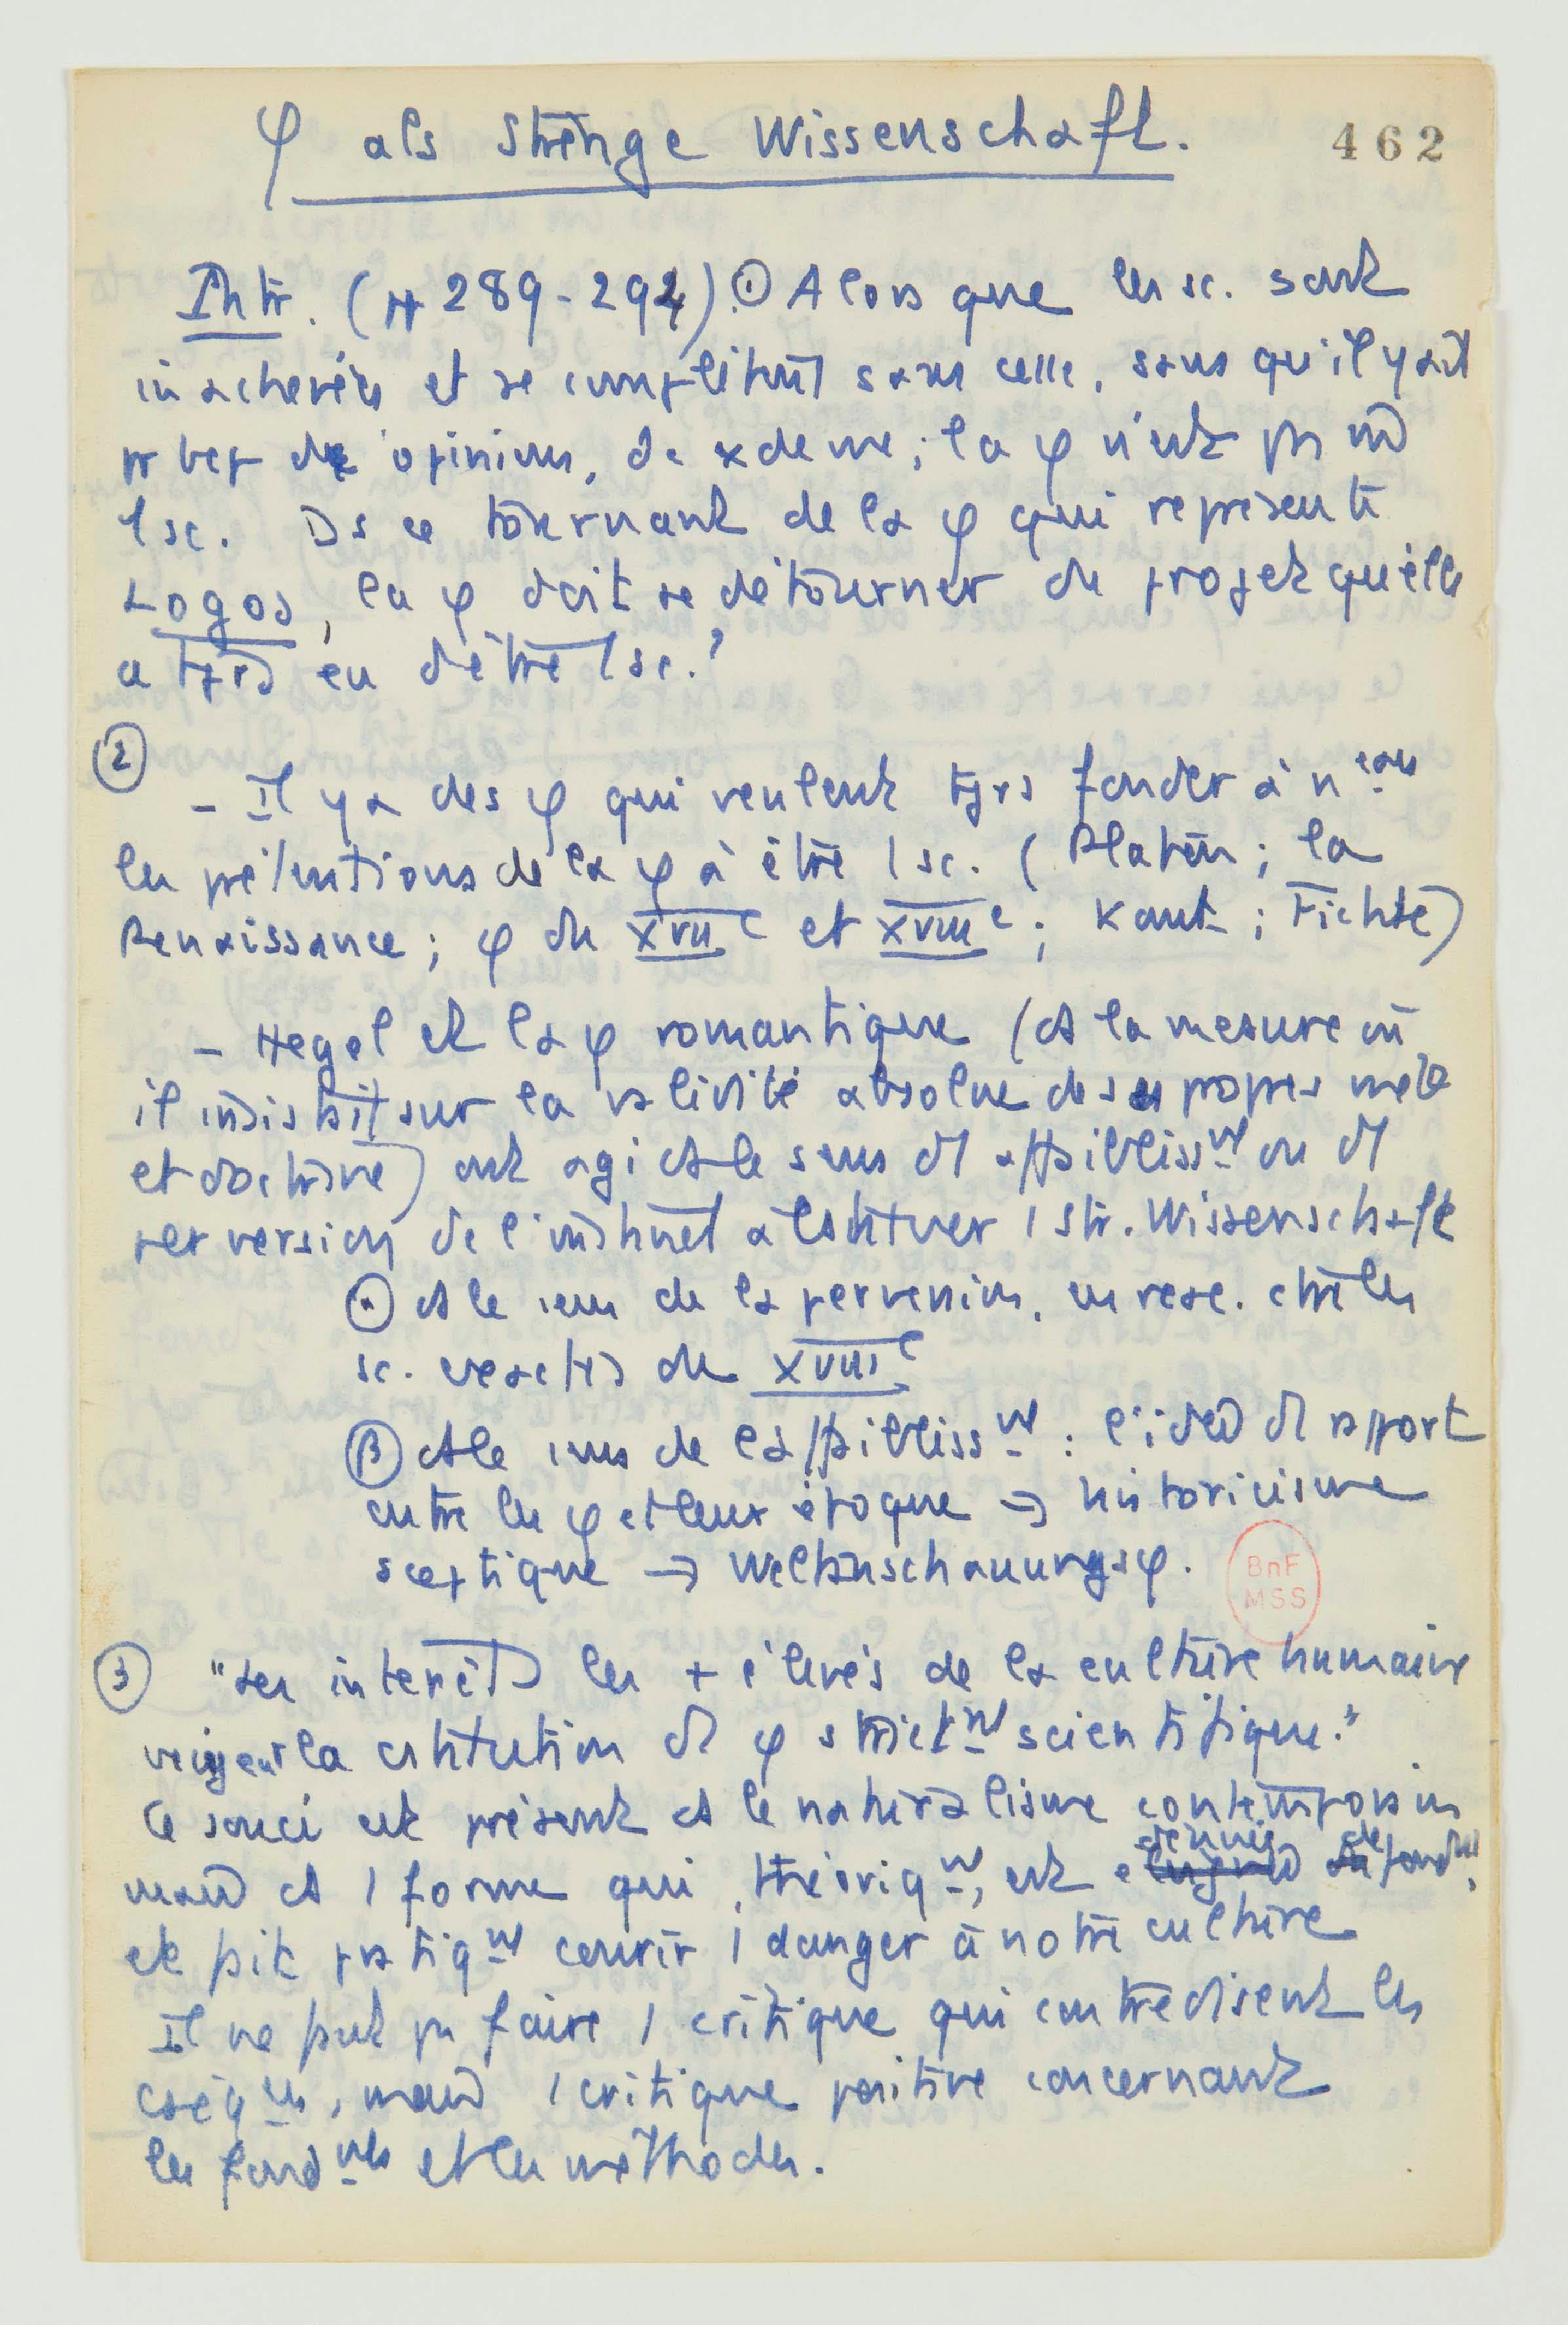 φ als Strenge Wissenschaft.
462
Intr. (pp 289-294). ① Alors que les sc. sont
inachevées et se complètent sans cesse, sans qu'il y ait
pr bcp d'opinions, de xdeme ; la φ n'est pas
1 sc. Ds ce tournant de la φ qui représente
Logos, la φ doit se détourner du projet qu'elle
a tjrs eu d'être 1 sc. ?
②
– Il y a des φ qui veulent tjrs fonder à neau
les prétentions de la φ à être 1 sc. (Platon ; la
Renaissance ; φ du XVIIe et XVIIIe ; Kant ; Fichte)
– Hegel et la φ romantique (ds la mesure où
il insistait sur la validité absolue de ses propres méth
et doctrine) ont agi ds le sens d'1 affaiblisst ou d'1
perversion de l'instinct à cstituer 1 str. Wissenschaft
ⓐ ds le sens de la perversion, en réac. ctre les
sc. exactes du XVIIIe
ⓑ ds le sens de l'affaiblisst : l'idée d'1 rapport
entre les φ et leur époque → historicisme
sceptique → Weltanschauungsφ.
BnF
MSS
③ "Les intérêts les + élevés de la culture humaine
exigent la cstitution d'1 φ strictt scientifique."
Ce souci est présent ds le naturalisme contemporain
mais ds 1 forme qui, théoriqt, est dénuée de fondt,
et fait pratiqt courir 1 danger à notre culture
Il ne faut pas faire 1 critique qui contredisent les
cséqces, mais 1 critique positive concernant
les fondmts et les méthodes.